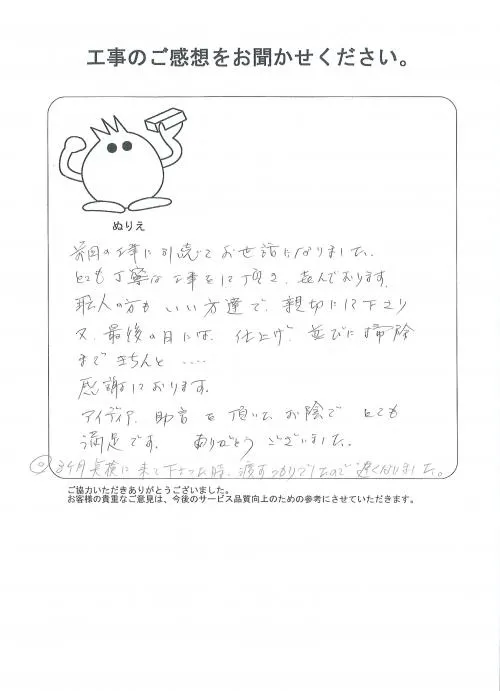 工事のご感想をお聞かせください。
ぬりえ
前回の工事に引続いてお世話になりました。
とても丁寧な工事をして頂き、喜んでおります。
職人の方もいい方達で、親切にして下さり
又、最後の日には、仕上げ、並びに掃除
まできちんと ‥‥
感謝しております。
アイディア、助言を頂いて、お陰でとても
満足です。 ありがとうございました。
◎3ヶ月点検に来て下さった時、渡すつもりでしたので遅くなりました。
ご協力いただきありがとうございました。
お客様の貴重なご意見は、今後のサービス品質向上のための参考にさせていただきます。